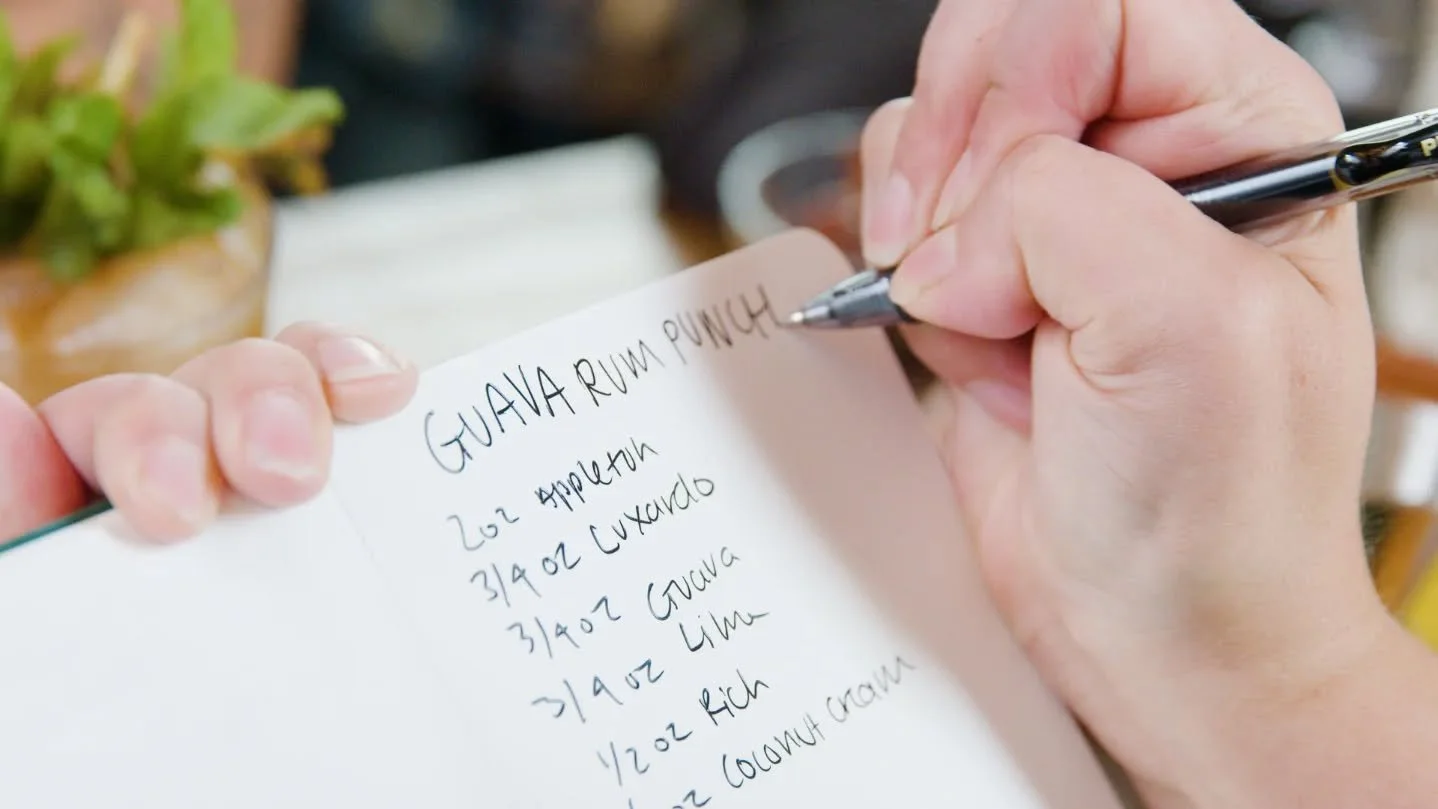 GUAVA RUM PUNCH
2oz Appleton
3/4 oz Luxardo
3/4 oz Guava
3/4 oz Lime
1/2 oz Rich
oz Coconut cream
P